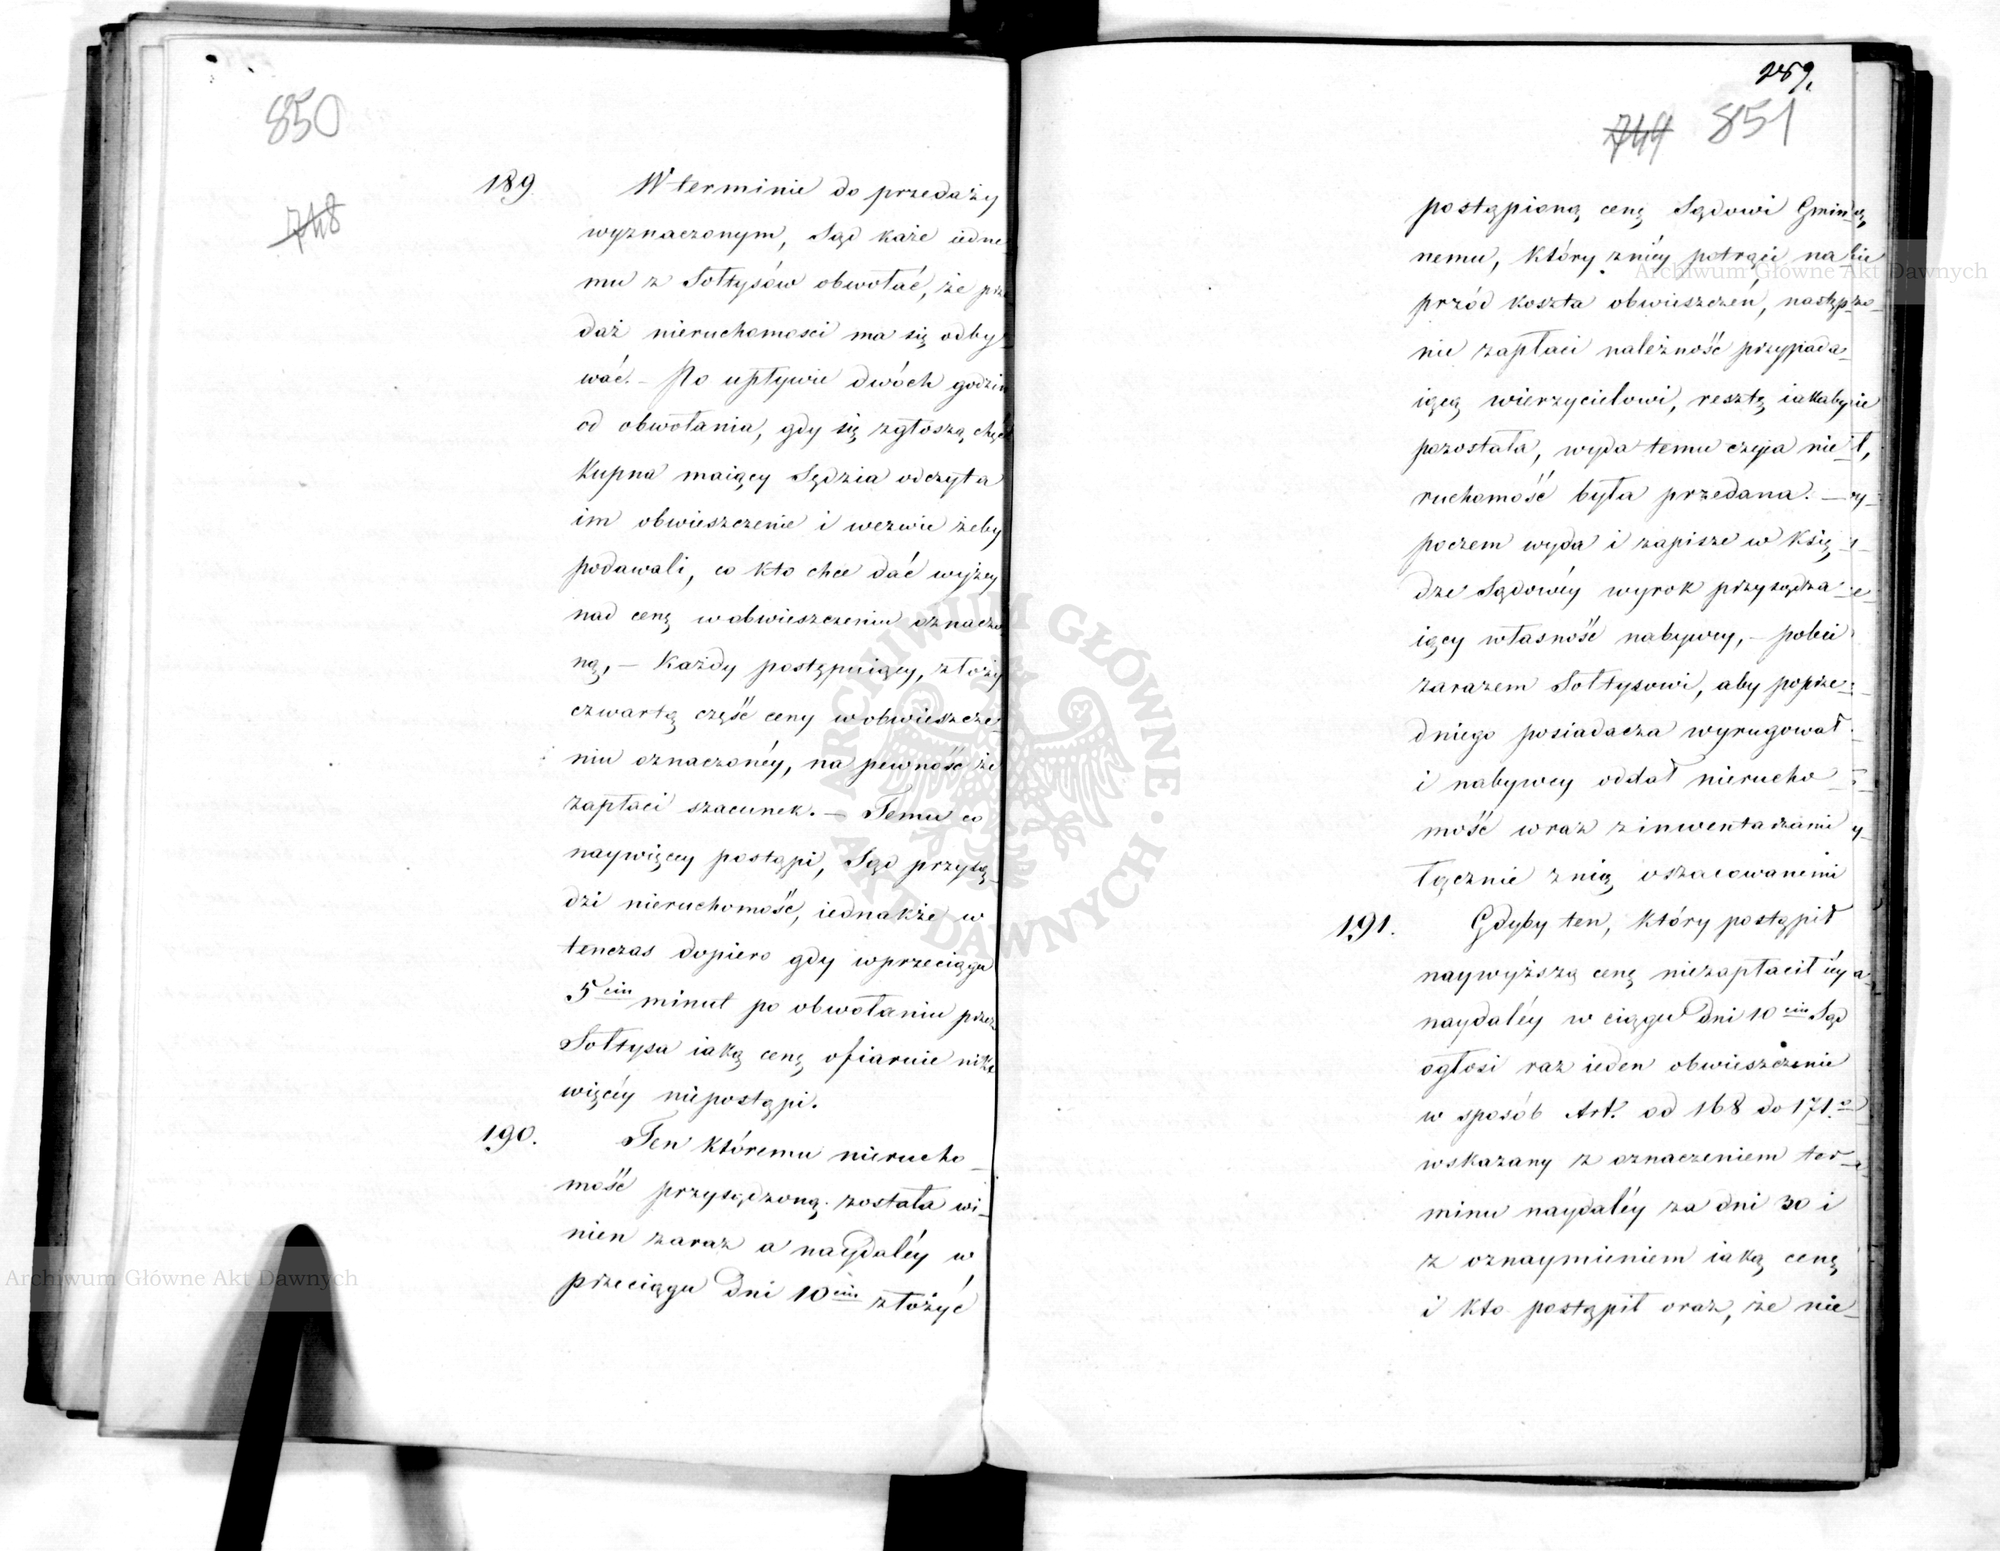 850
748
189 W terminie do przedaży
wyznaczonym, Sąd każe iedne
mu z Sołtysów obwołać, że prze
daż nieruchomości ma się odby
wać. – Po upływie dwóch godzin
od obwołania, gdy się zgłoszą chęć
kupna maiący Sędzia odczyta
im obwieszczenie i wezwie żeby
podawali, co kto chce dać wyżey
nad cenę w obwieszczeniu oznaczo
ną, – Każdy postępuiący, złoży
czwartą część ceny w obwieszcze
niu oznaczonéy, na pewność że
zapłaci szacunek. – Temu co
naywięcey postąpi, Sąd przysą_
dzi nieruchomość, iednakże w
tenczas dopiero gdy w przeciągu
5ciu minut po obwołaniu przez
Sołtysa iaką cenę ofiaruie nikt
więcéy niepostąpi.
190. Ten któremu nierucho_
mość przysądzoną została wi_
nien zaraz a naydaléy w
przeciągu dni 10ciu złożyć
259.
749 851
postąpioną cenę Sądowi Gmin
nemu, który z niéy potrąci na
przód koszta obwieszczeń, następ
nie zapłaci należność przypada_
iącą wierzycielowi, resztę iakaby
pozostała, wyda temu czyia nie
ruchomość była przedana. –
poczem wyda i zapisze w Księ
dze Sądowéy wyrok przysądza
iący własność nabywcy, – poleci
zarazem Sołtysowi, aby poprze
dniego posiadacza wyrugował
i nabywcy oddał nierucho
mość wraz z inwentarzami
łącznie z nią oszacowanemi
191. Gdyby ten, który postąpił
naywyższą cenę niezapłacił iéy
naydaléy w ciągu dni 10ciu Sąd
ogłosi raz ieden obwieszczenie
w sposób Art. od 168 do 171.
wskazany z oznaczeniem ter_
minu naydaléy za dni 30 i
z oznaymieniem iaką cenę
i kto postąpił oraz, że nie_
Archiwum Główne Akt Dawnych
Archiwum Główne Akt Dawnych
ARCHIWUM GŁÓWNE AKT DAWNYCH